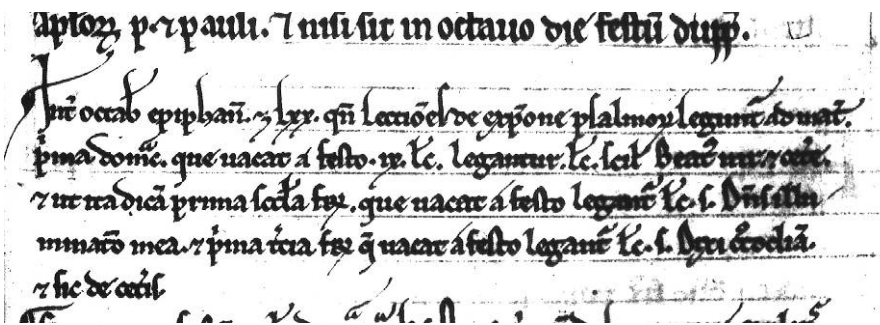 aplo⁊ꝝ p. ⁊ pauli. ⁊ nisi sit in octauo die festū
Int̄ octab̄ epiphan̄. ⁊ lxx. qn̄ lecciōes de exp̄one psalmoꝝ legunt̄ ad mat̄.
p̄ma domc̄. que uacat a festo. ix. lc̄. legantur. lc̄. scil̄ Beat᷒ uir. ⁊ cet̄e.
⁊ ut ita dicā prima scd̄a fer̄. que uacat a festo legant̄ lc̄. s. Dn̄s illu
minat̄o mea. ⁊ p̄ma t̄cia fer̄ q̄ uacat a festo legant̄ lc̄. s. Dixi c᷒todiā.
⁊ sic de cet̄is.